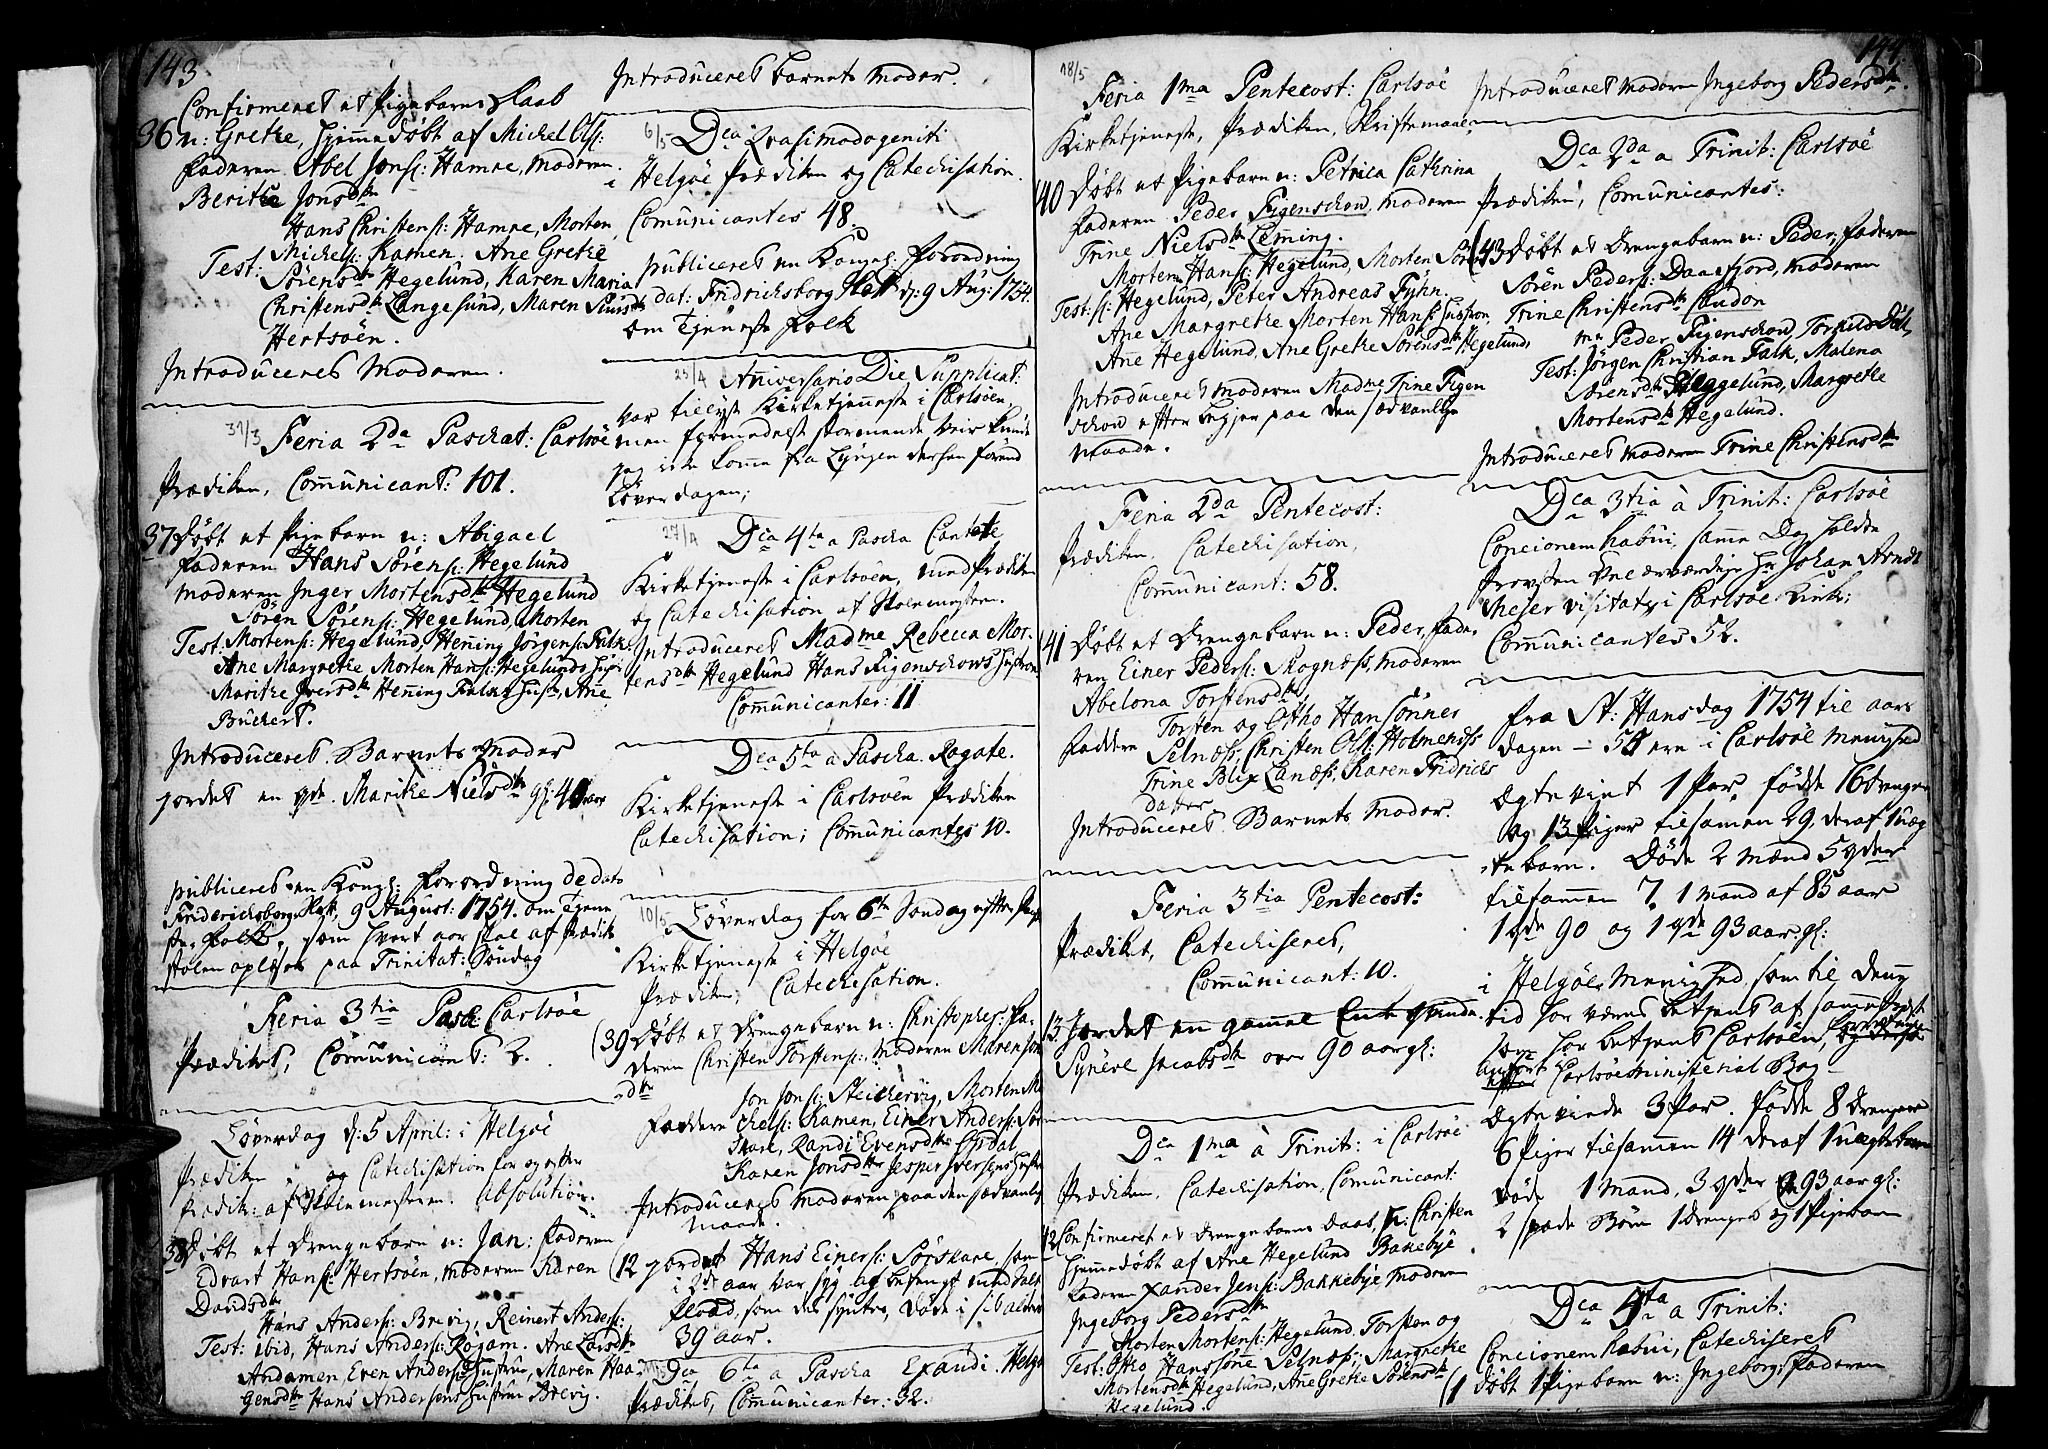 143
Confirmeret et Pigebarns Daab
36 n: Grethe, hjemmedøbt af Michel Ols:
Faderen Abel Jons: Hamre, Moderen
Berithe Jonsdtr
Hans Christens: Hamre, Morten
Michels: Kamen. Ane Grethe
Test: Sørensdtr Hegelund, Karen Maria
Christensdtr Langesund, Maren
Hertsöen.
Introduceret Moderen.
31/3 Feria 2da Paschat: Carlsöe
Prædiken, Communicant: 101.
37 Døbt et Pigebarn n: Abigael
Faderen Hans Sörens: Hegelund
Moderen Inger Mortensdtr Hegelund
Sören Sörens: Hegelund, Morten
Test: Mortens: Hegelund, Henning Jørgens: Falk
Ane Margrethe Morten Hans: Hegelunds Hustr
Marithe Iversdtr Henning Falks Hustr, Ane
Buchert.
Introduceret Barnets Moder
jordet en qde. Marithe Nielsdtr gl: 40 aar
publiceret en Kongl: Forordning de dato
Friderichsborg Slott, 9 August: 1754. om Tjene
ste Folk, som hvert aar skal af Prædike
stolen oplæses paa Trinitat: Søndag
Feria 3tia Pasch Carlsöe
Prædiket, Communicant: 2.
Løverdag d: 5 April: i Helgöe
Prædiken og Catechisation for og efter
Prædik: af Skolemesteren. Absolution.
38 Døbt et Drengebarn n: Jan: Faderen
Edvart Hans: Hertsöen, Moderen Karen
Davidsdtr
Hans Anders: Brevig, Reinert Anders:
Test: ibid, Hans Anders: Rogam. Ane Larsdtr
Andamen Even Anders: Hustru, Maren Haa-
gensdtr Hans Andersens Hustru Brevig.
Introduceret barnets Moder.
6/5 Dca Qvasimodogeniti
i Helgöe Prædiken og Catechisation.
Communicantes 48.
publiceret en Kongel: Forordning
dat: Fridrichsborg Slott d: 9 Aug: 1754.
om Tjeneste Folk
25/4 Aniversario Die Supplicat:
var tillyst Kirketjenneste i Carlsöen,
men formedelst stormende Veir kunde
jeg icke komme fra Lyngen dersen førend
Løverdagen;
27/4 Dca 4ta a Pascha Cantate
Kirketjeneste i Carlsöen, med Prædiken
og Catechisation af Skolemesteren.
Introduceret Madme Rebecca Mor-
tensdtr Hegelund Hans Figenschows Hustru
Communicanter: 11
Dca 5ta a Pascha. Rogate.
Kirketjeneste i Carlsöen Prædiken
Catechisation; Communicantes 10.
10/5 Løverdag for 6te Søndag efter Paasche
Kirketjeneste i Helgöe
Prædiken; Catechisation.
(39 Døbt et Drengebarn n: Christopher: Fa-
deren Christen Torstens: Moderen Maren Jons
dtr
Jon Jons: Steichervig, Morten Mi-
Faddere chels: Kamen, Einer Anders: Sör
skare, Randi Evensdtr
Karen Jonsdtr Jesper Iversens Hustru
Introduceret Moderen paa den sædvanlig
maade.
(12 jordet Hans Einers: Sörskare som
i 2de aar var syg af
som døde i sit alder
39 aar.
Dca 6ta a Pascha Exaudi. Helgö
Prædiket, Communicanter: 32.
144.
18/5
Feria 1ma Pentecost: Carlsöe
Kirketjeneste, Prædiken, Skriftemaal,
40 Døbt et Pigebarn n: Petrica Cathrina
Faderen Peder Figenschou, Moderen
Trine Nielsdtr Lemming.
Morten Hans: Hegelund, Morten Sören
Test: s: Hegelund, Peter Andreas Fyhn.
Ane Margrethe Morten Hans: Hustru,
Ane Hegelund, Ane Grethe Sörensdtr Hegelund,
Introduceret Moderen Madme Trine Figen
schou efter begjer paa den sædvanlige
maade.
Feria 2da Pentecost:
Prædiken, Catechisation,
Communicant: 58.
41 Døbt et Drengebarn n: Peder, Fade-
ren Einer Peders: Skognæss, Moderen
Abelona Torstensdtr
Torsten og Ostho Hansönner
Faddere Selnæss, Christen Ols: Holmenæss
Trine Blix Lanæss, Karen Fridrichs
datter
Introduceret Barnets Moder.
Feria 3tia Pentecost:
Prædiket, Catechiseret,
Communicant: 10.
13. Jordet en gammel Enke qvinde
Synöve Jacobsdtr over 90 aar gl:
Dca 1ma à Trinit: i Carlsöe
Prædiken, Catechisation, Communicant:
42 Confirmeret et Drengebarns Daab, n: Christen
hjemmedøbt af Ane Hegelund Bakkebye
Faderen Xander Jens: Bakkebye, Moderen
Ingeborg Pedersdtr
Morten Mortens: Hegelund, Torsten og
Test: Otto Hanssöne Selnæss; Margrethe
Mortensdtr Hegelund, Ane Grethe Sörensdtr
Hegelund.
Introduceret Moderen Ingeborg Pedersdtr.
Dca 2da a Trinit: Carlsöe
Prædiken, Communicantes:
(43 Døbt et Drengebarn n: Peder, Faderen
Sören Peders: Daasfjord, Moderen
Trine Christensdtr Laudon
mr Peder Figenschou,
Test: Jörgen Christian Falk, Malena
Sörensdtr Heggelund, Margrethe
Mortensdtr Hegelund.
Introduceret Moderen Trine Christensdtr
Dca 3tia à Trinit: Carlsöe
Concionem habui, samme Dag holdte
Provsten Velærværdige Hr Johan Arndt
Mejer visitatz i Carlsöe Kirke;
Communicantes 52.
fra St: Hansdag 1754 til aars
dagen — 55 ere i Carlsöe Menighed
Ægteviet 1 Par, fødde 16 Drenge
og 13 Piger tilsamen 29, deraf 1 uæg
te barn. Døde 2 Mænd 5 qvder
tilsammen 7. 1 mand af 85 aar
1 qde 90 og 1 qde 93 aar gl:
i Helgöe Menighed som til denne
tid har været betjent af samme Præst
som har betjent Carlsöen,
anført Carlsöe Ministerial Bog
Ægteviede 3 Par. Fødde 8 Drenge
6 Piger tilsammen 14 deraf 1 uægte barn
døde 1 Mand, 3 qvder 93 aar gl:
2 spæde Børn 1 Drenge og 1 Pigebarn
Dca 4ta a Trinit:
Concionem habui, Catechiseret
(1 Døbt 1 Pigebarn n: Ingeborg: Faderen